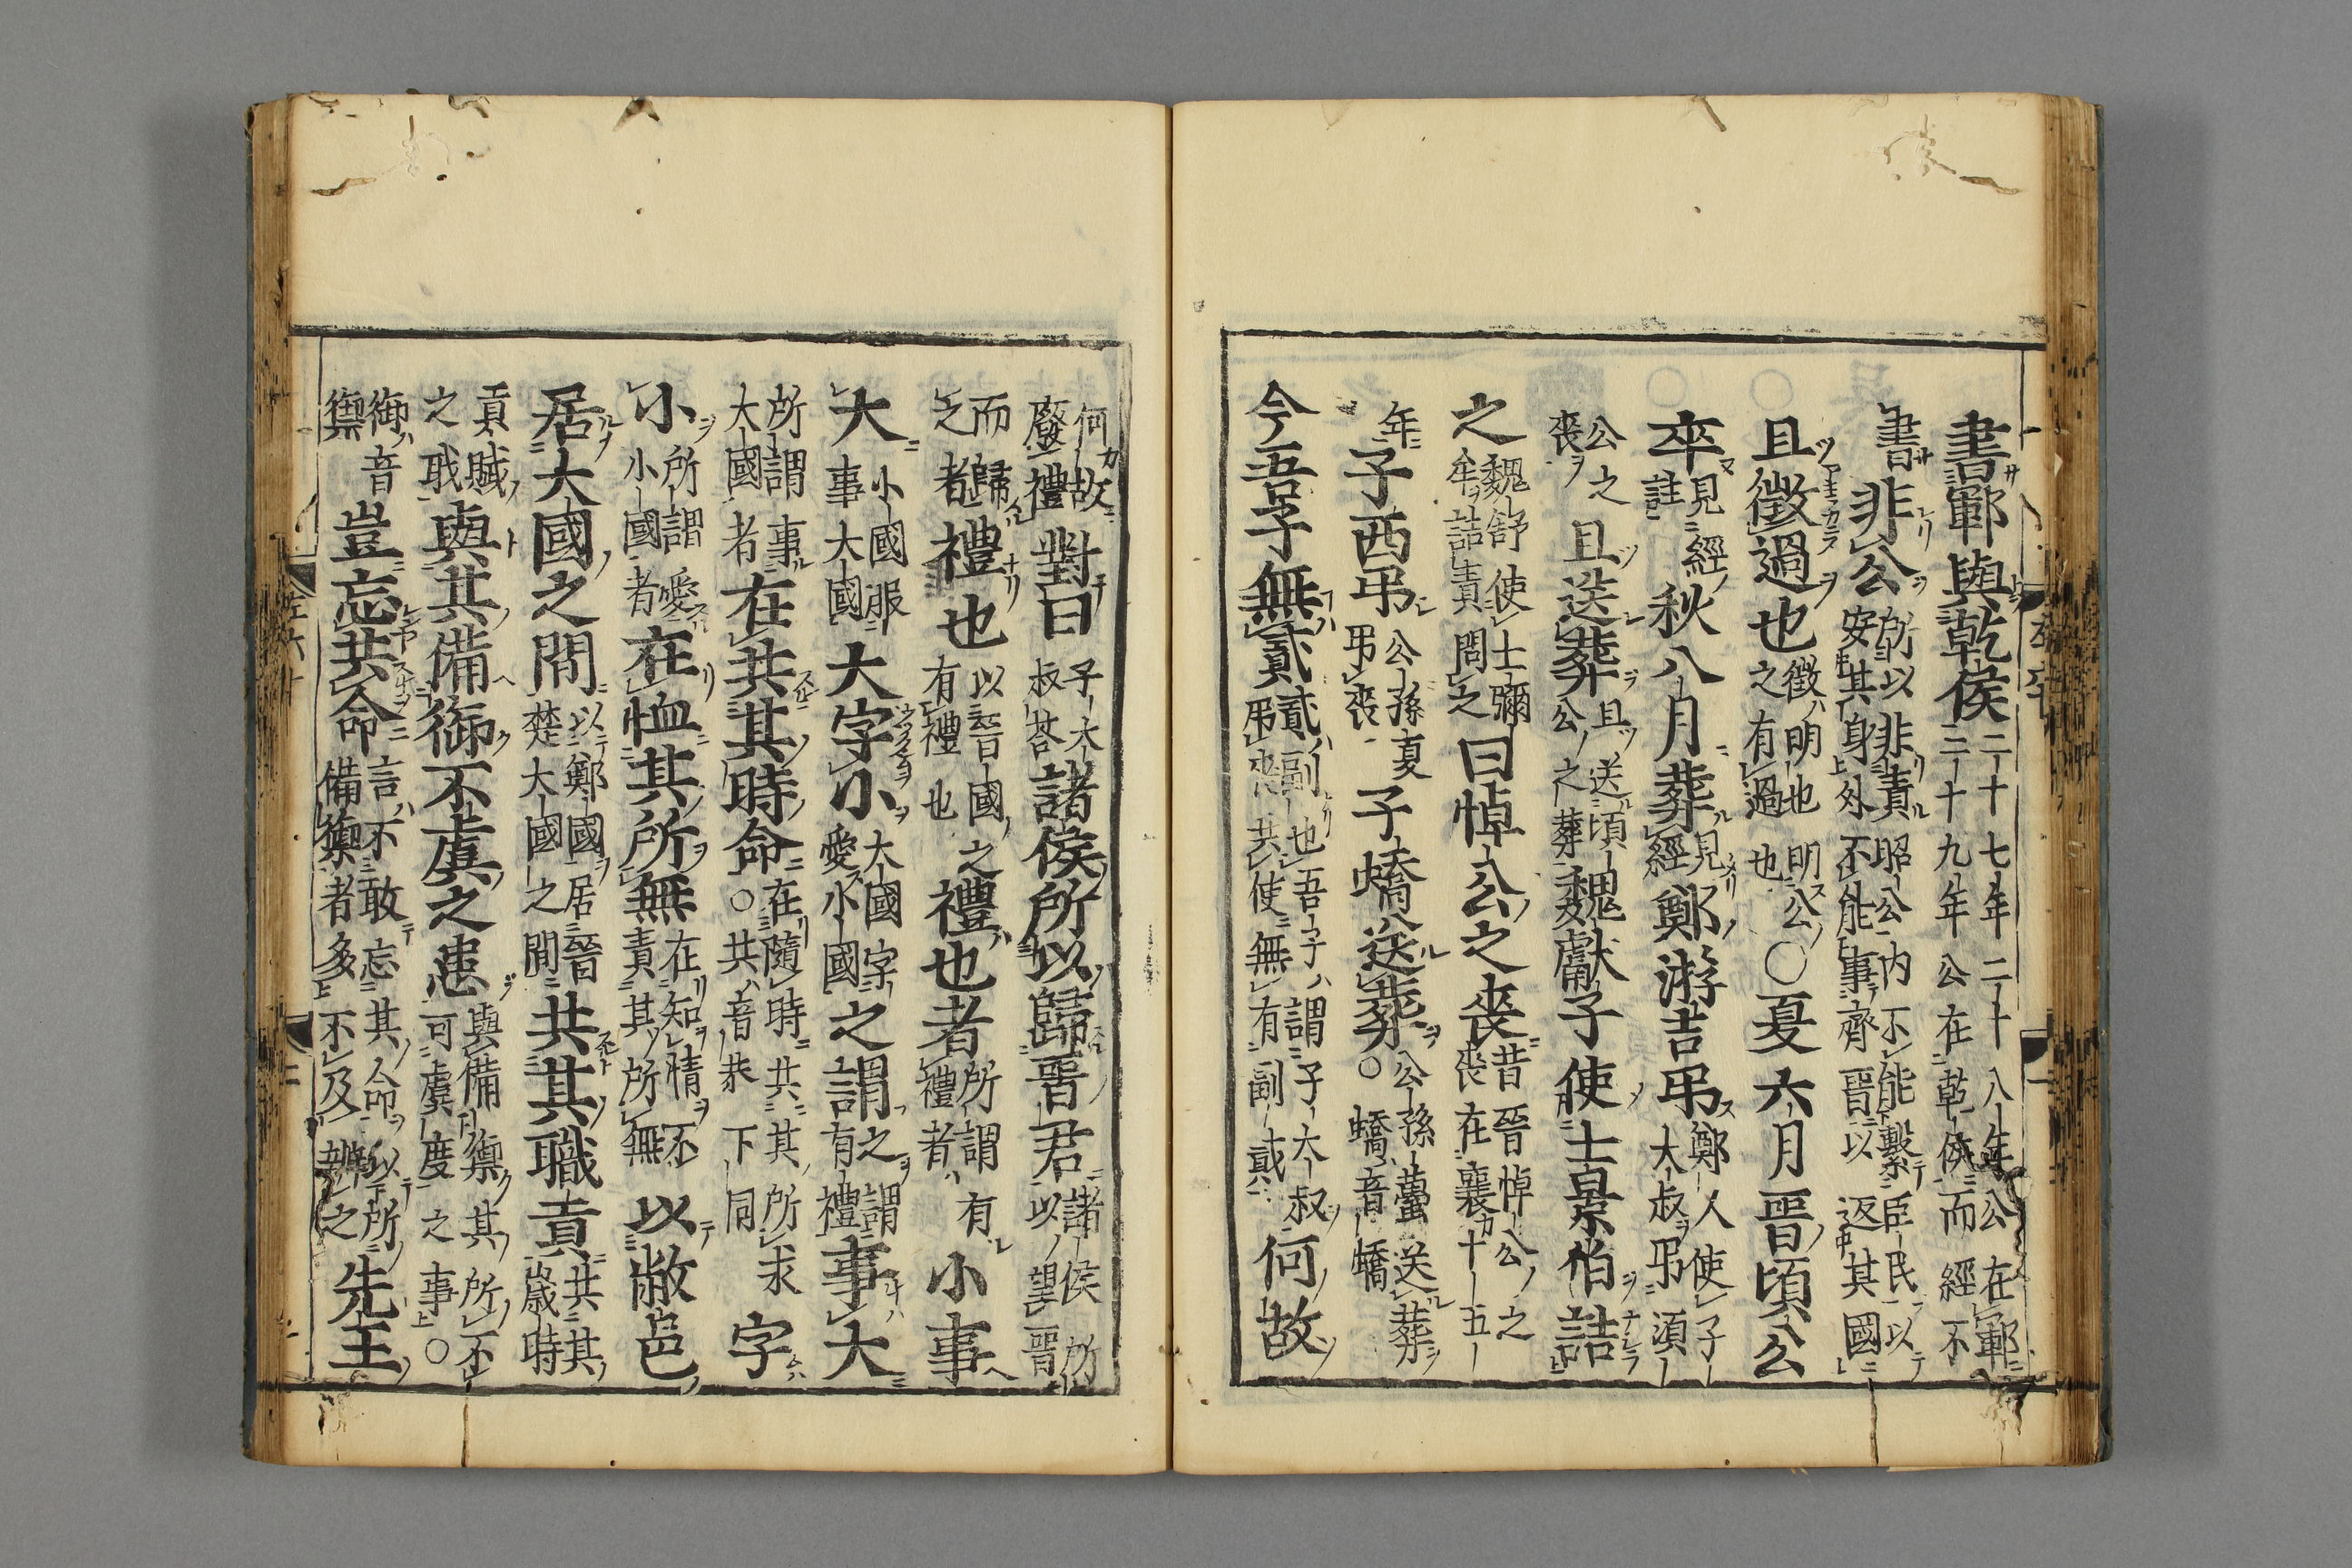 書鄆與乾侯二十七年二十八年公在鄆二十九年公在乾侯而經不
書非公所以非責昭公内不能繫臣民以安其身外不能事齊晉以返其國
且徵過也徵明也明公之有過也○夏六月晉頃公
卒見經註秋八月葬見經鄭游吉弔鄭人使子大叔弔湏
公之喪且送葬且送頃公之葬魏獻子使士景伯詰
之魏舒使士彌牟詰責問之曰悼公之喪昔晉悼公之喪在襄十五
年子西弔公孫夏弔喪子蟜送葬公孫蠆送葬○蟜音蟜
今吾子無貳貳副也吾子謂子大叔弔喪共使無有副貳何故
何故廢禮對曰子大叔荅諸侯所以歸晉君諸侯所以望晉
而歸之者禮也以晉國之有禮也禮也者所謂有禮者小事
大小國服事大國大字小大國字愛小國之謂之謂有禮事大
所謂事大國者在共其時命在隨時共其所求○共音恭下同字
小所謂愛小國者在恤其所無在知情不責其所無以敝邑
居大國之間以鄭國居晉楚大國之間共其職貢共其歲時
貢賦之職與其備御不虞之患與備禦其所不可虞度之事○
御音禦豈忘共命言不敢忘其命以所備禦者多不及辦之先王